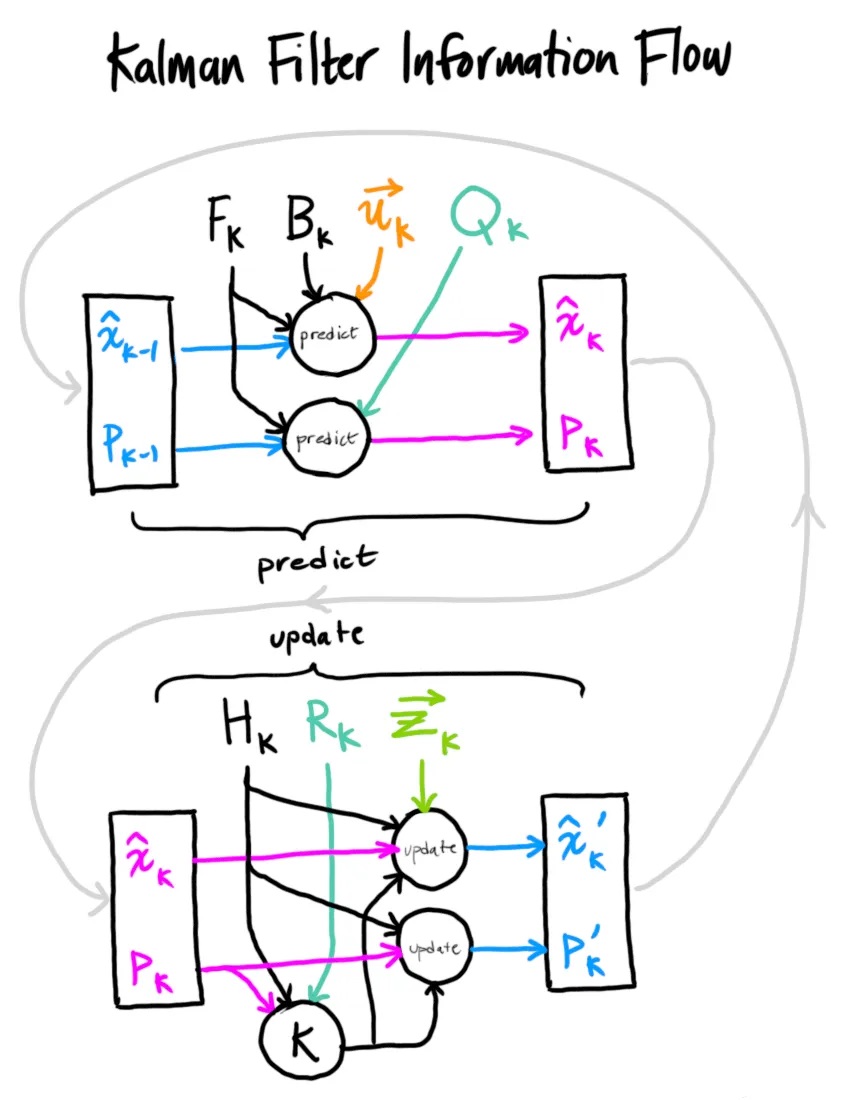 Kalman Filter Information Flow
F_k B_k \vec{u}_k Q_k
\hat{x}_{k-1} predict \hat{x}_k
P_{k-1} predict P_k
predict
update
H_k R_k \vec{z}_k
\hat{x}_k update \hat{x}_k'
P_k update P_k'
K